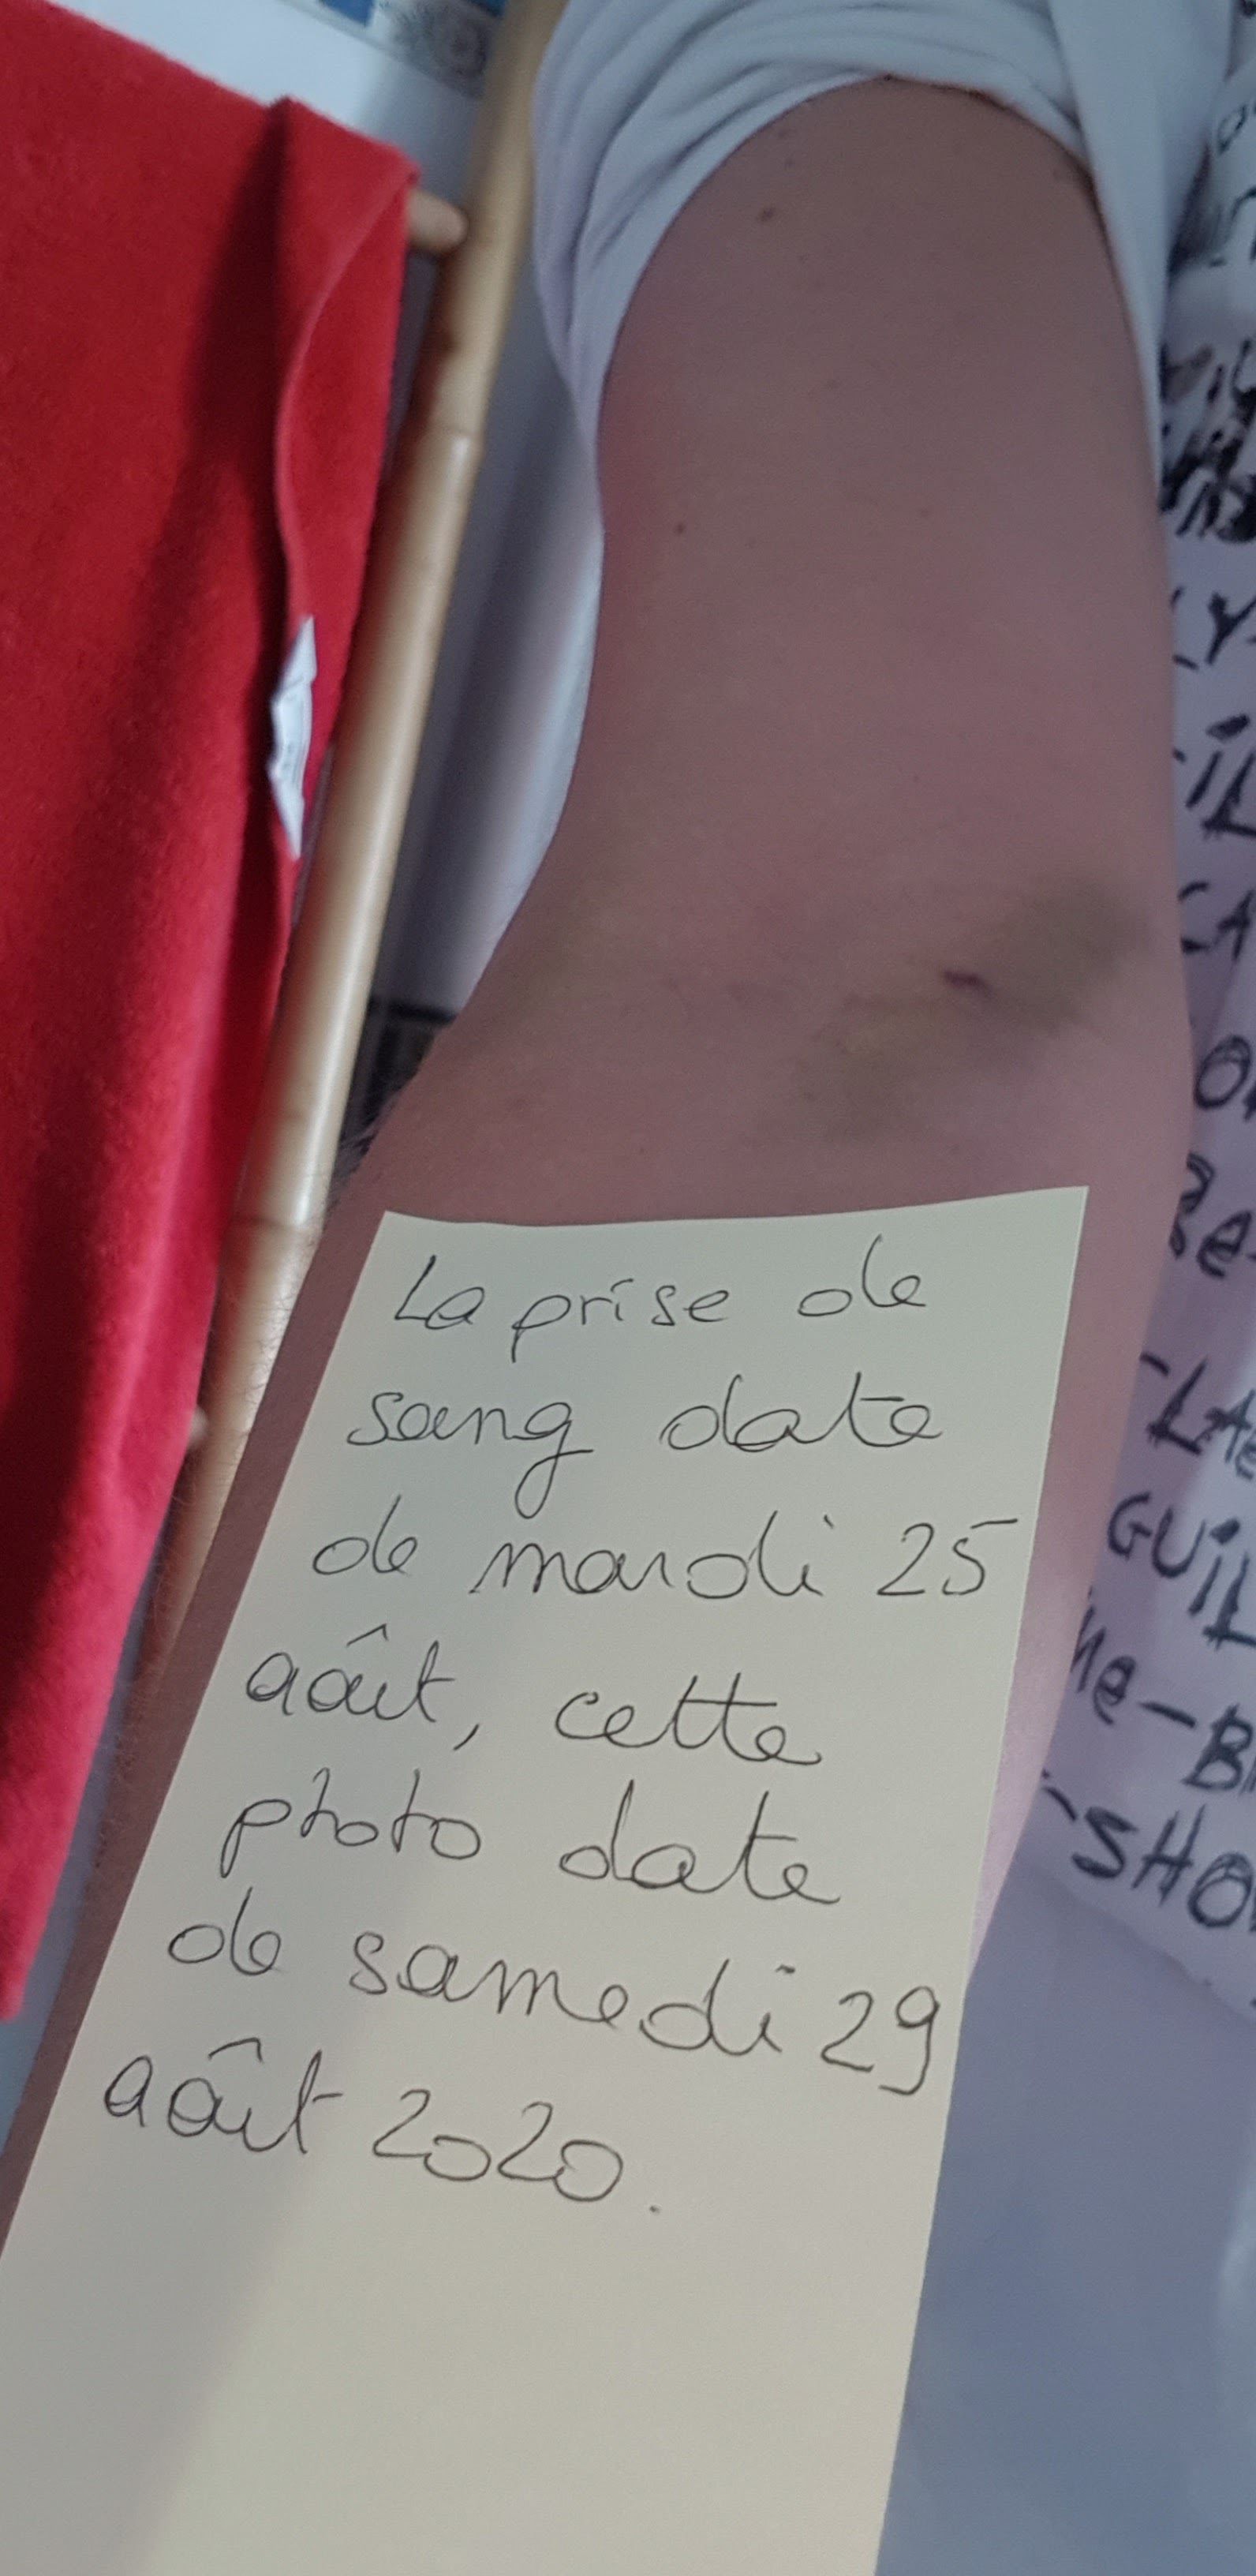 La prise de
sang date
de mardi 25
août, cette
photo date
de samedi 29
août 2020.
-LAE
GUIL
-SHO